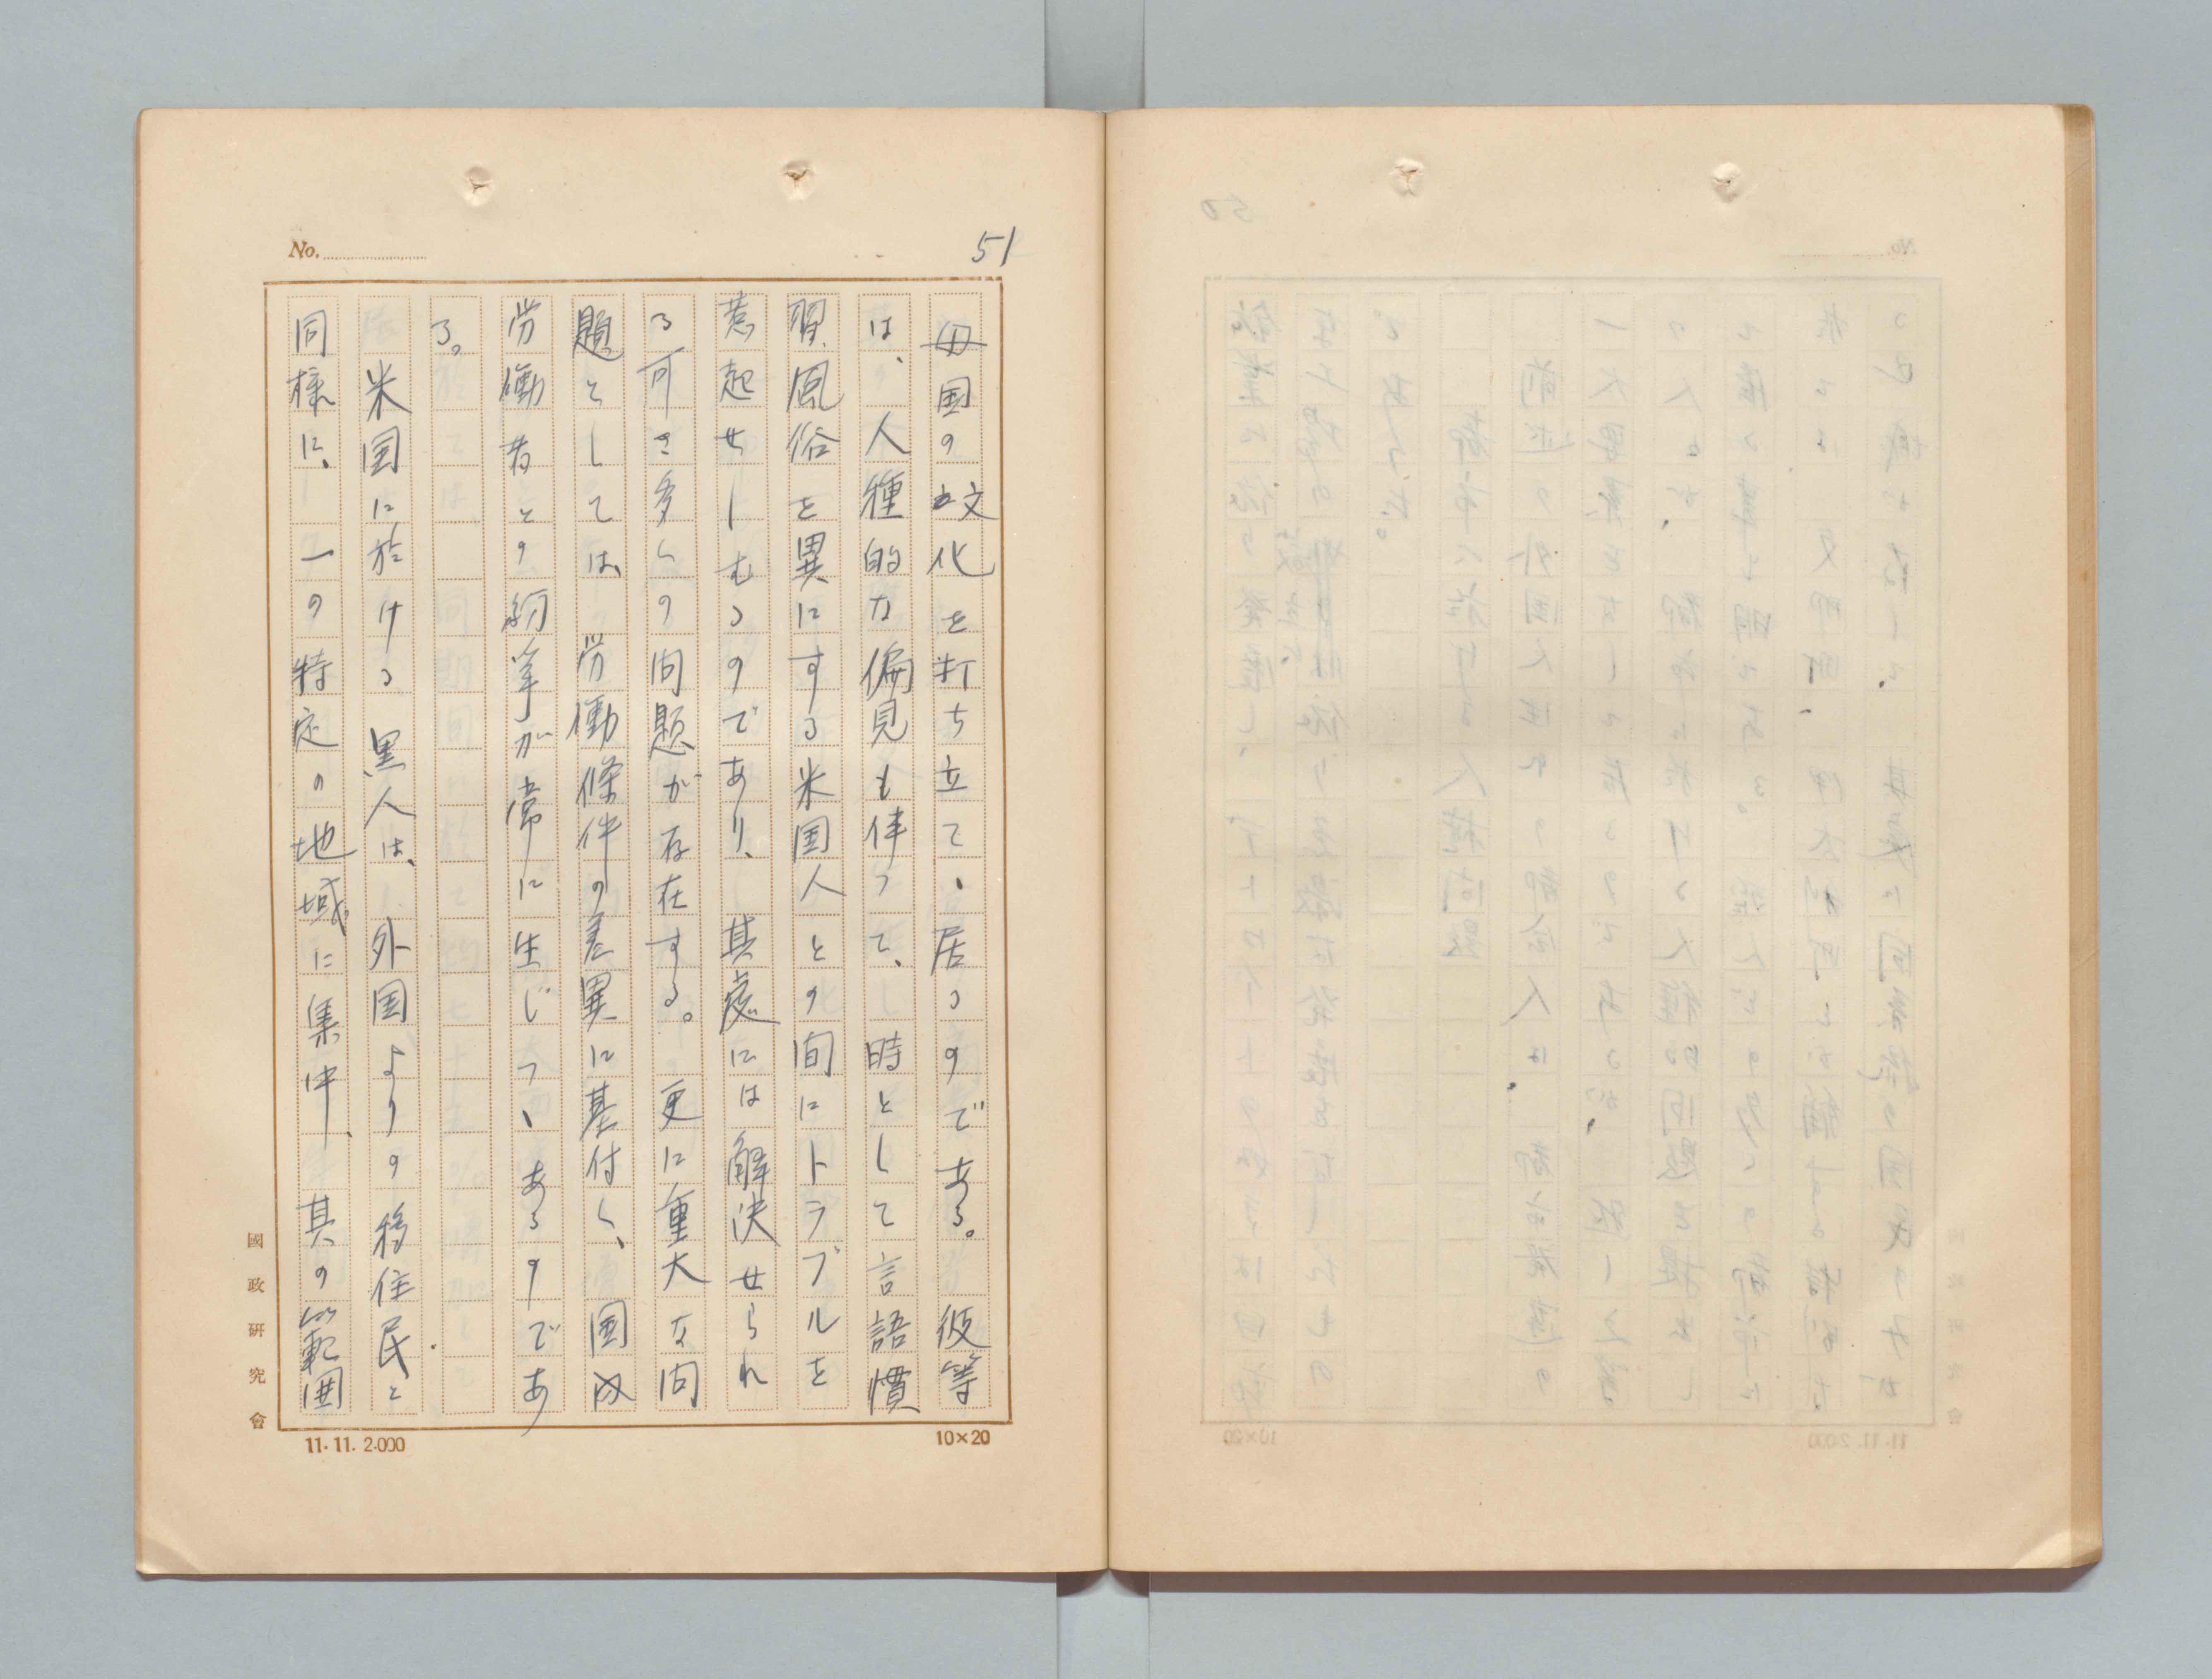 51
No.
母国の文化を打ち立てゝ居るのである。彼等
は、人種的な偏見も伴つて、時として言語慣
習、風俗を異にする米国人との間にトラブルを
惹起せしむるのであり、其処には解決せられ
る可き多くの問題が存在する。更に重大な問
題としては、労働條件の差異に基付く、国内
労働者との紛争が常に生じつゝあるのであ
る。
米国に於ける黒人は、外国よりの移住民と
同様に、一の特定の地域に集中、其の範囲
國政研究會
11.11.2.000
10×20